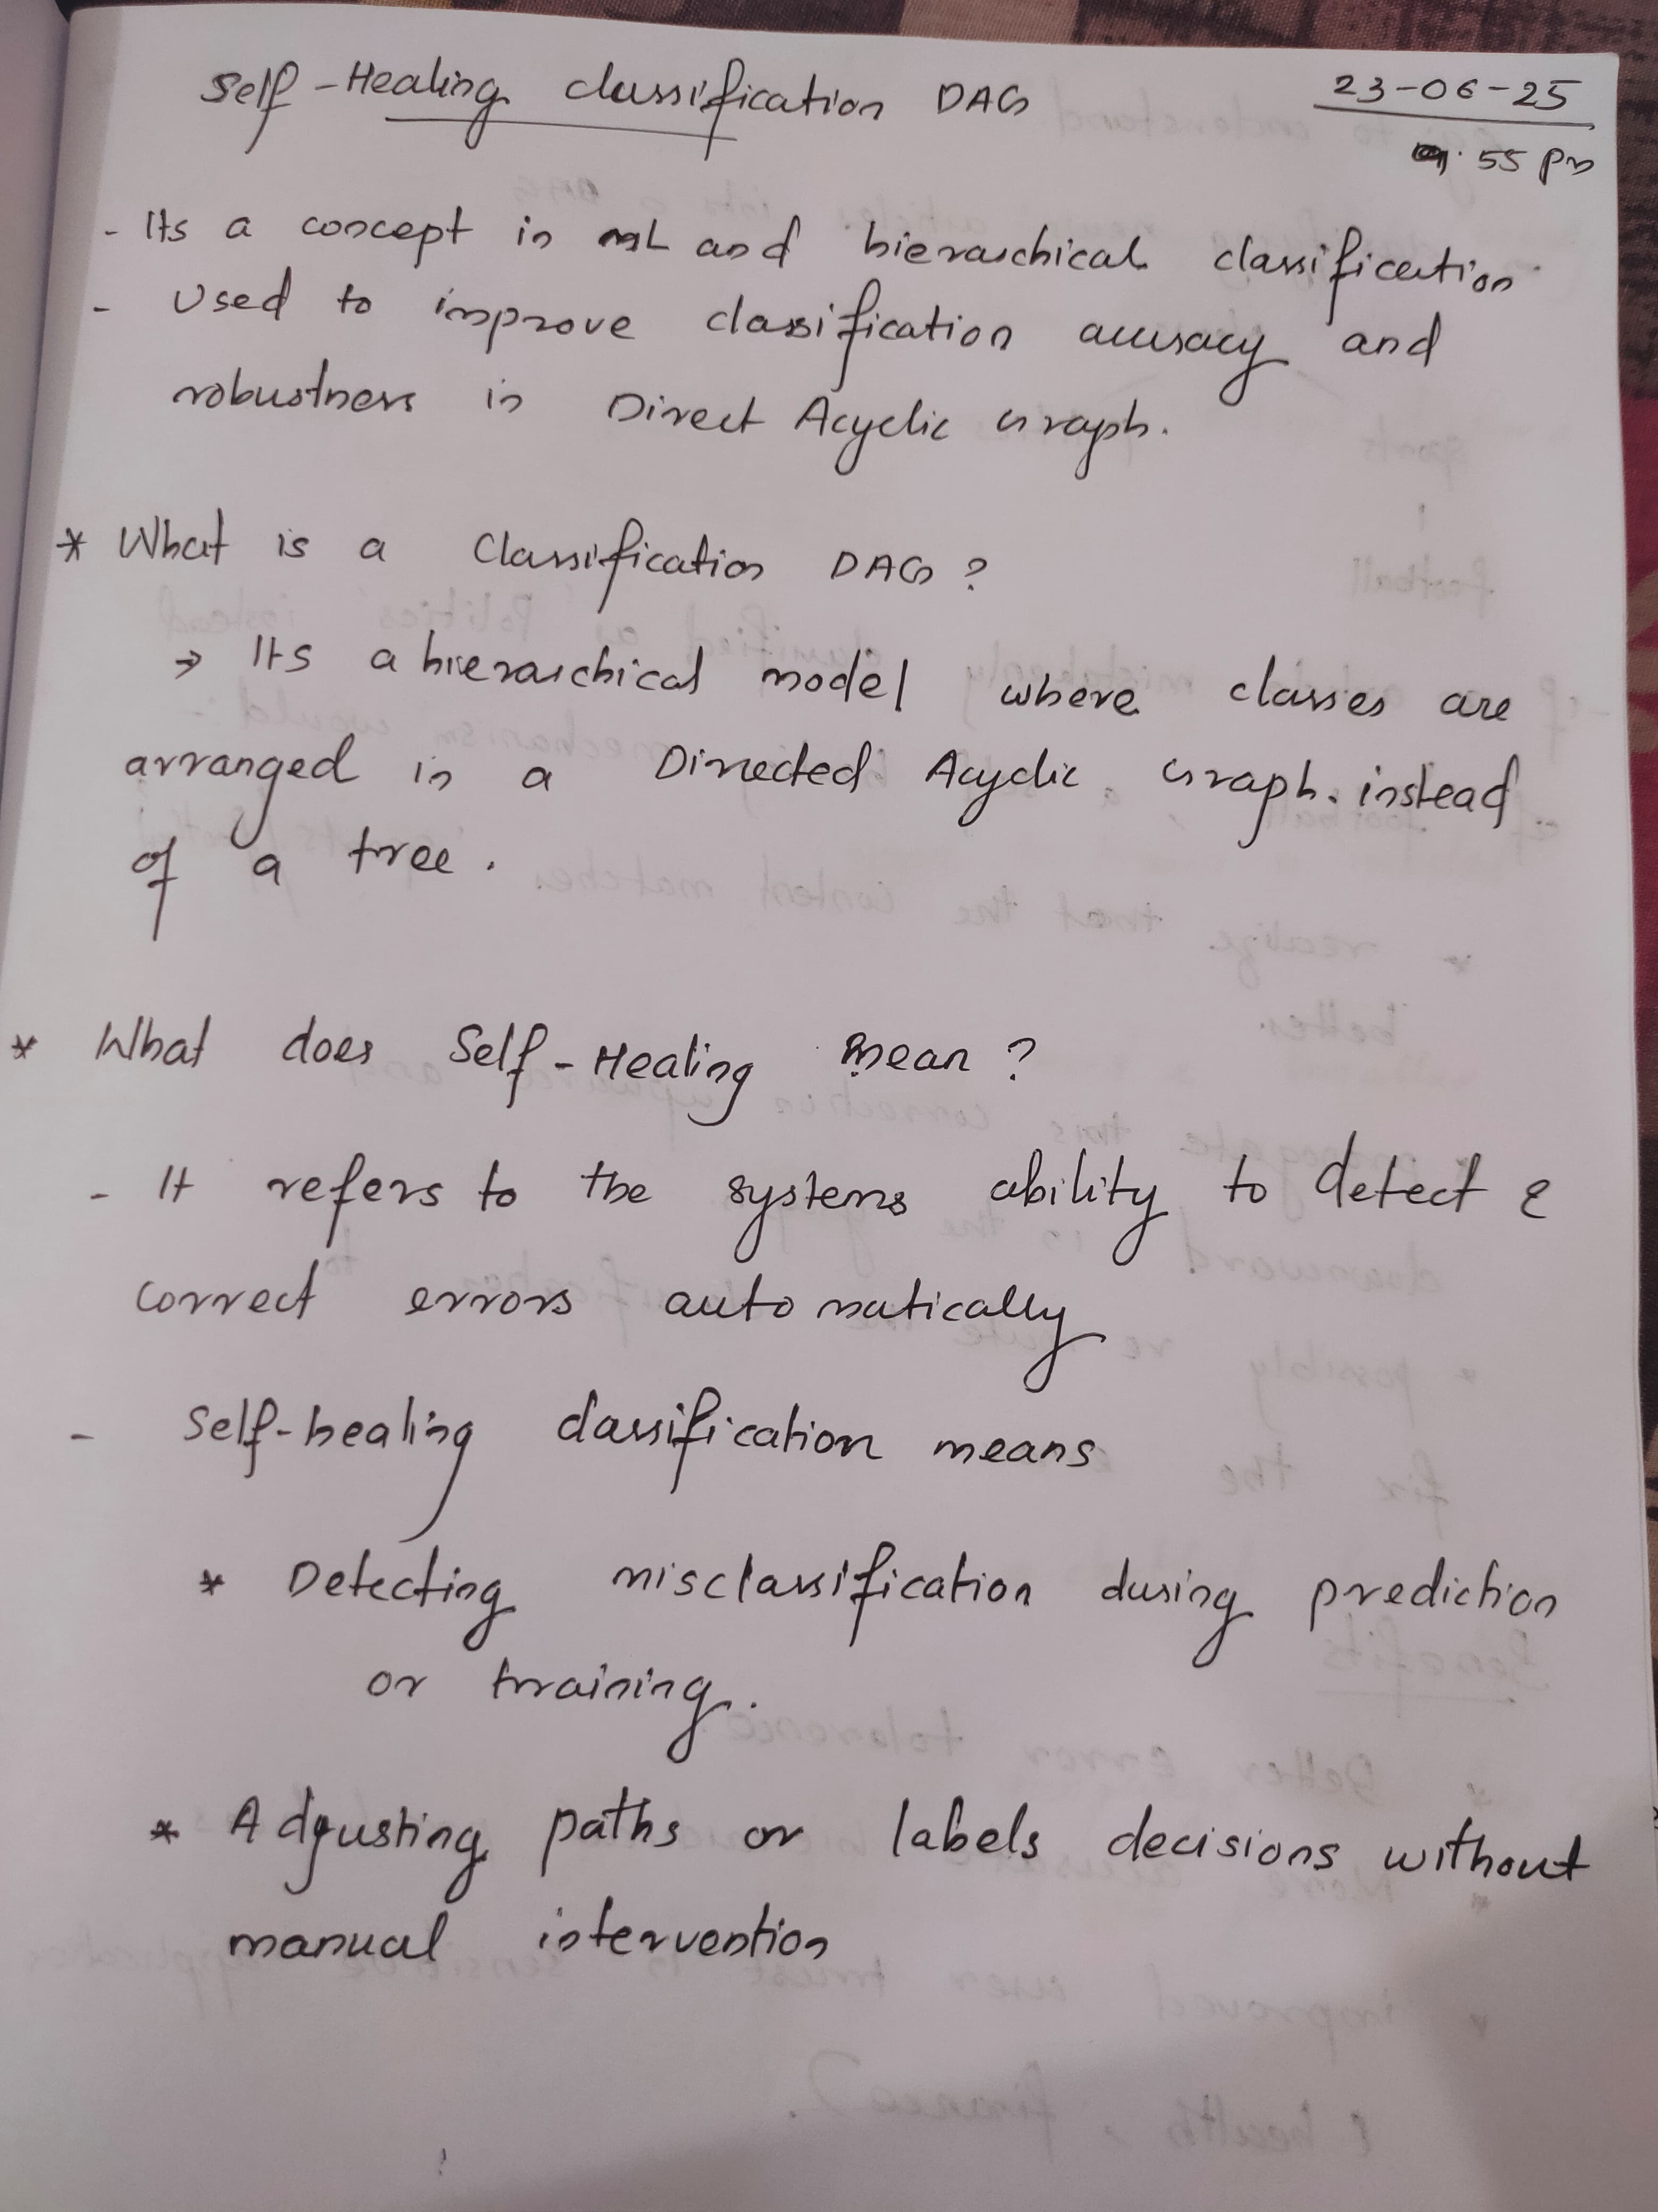 Self-Healing classification DAG
23-06-25
55 pm
- Its a concept in ML and hierarchical classification.
- Used to improve classification accuracy and
robustness in Direct Acyclic Graph.
* What is a Classification DAG?
→ Its a hierarchical model where classes are
arranged in a Directed Acyclic Graph. instead
of a tree.
* What does Self-Healing mean?
- It refers to the systems ability to detect &
correct errors automatically
- Self-healing classification means
* Detecting misclassification during prediction
or training.
* Adjusting paths or labels decisions without
manual intervention